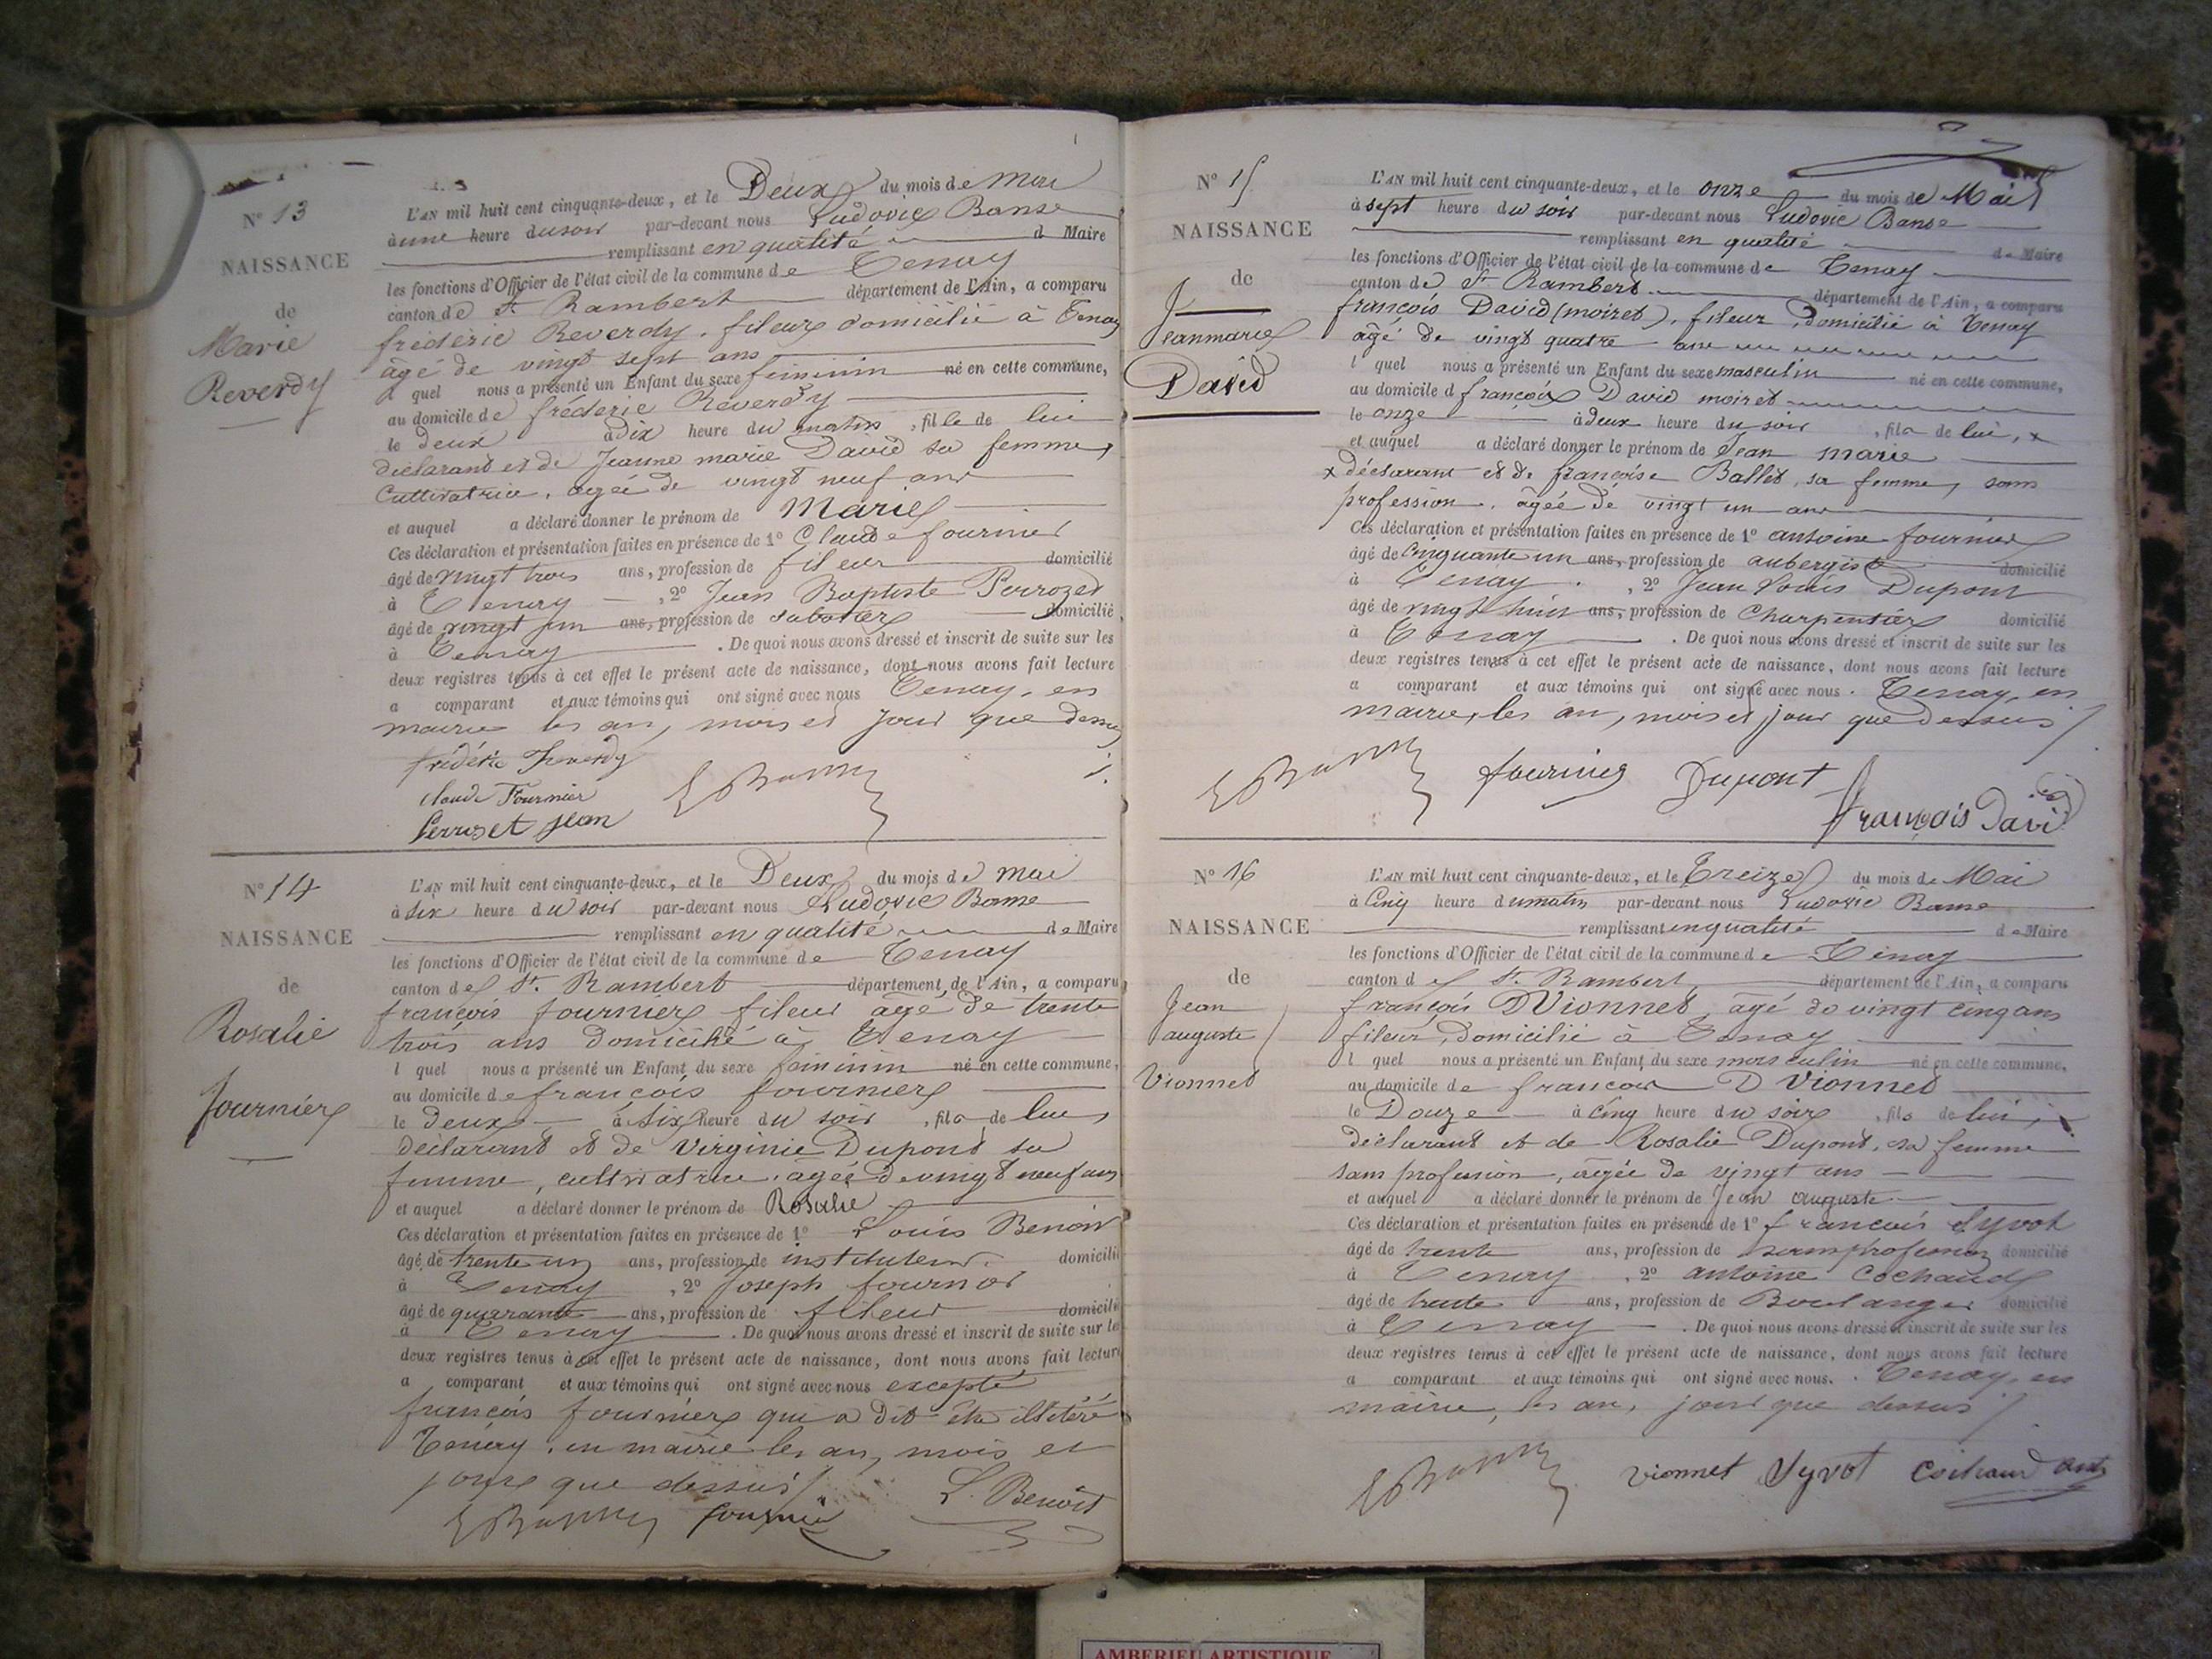 N° 13
NAISSANCE
de
Marie
Reverdy
L'AN mil huit cent cinquante-deux, et le Deux du mois de Mai
à une heure du soir par-devant nous Ludovic Banse
remplissant en qualité de Maire
les fonctions d'Officier de l'état civil de la commune de Tenay
canton de St Rambert département de l'Ain, a comparu
frédéric Reverdy, fileur domicilié à Tenay
âgé de vingt sept ans
l quel nous a présenté un Enfant du sexe féminin né en cette commune,
au domicile de fréderic Reverdy
le deux à dix heure du matin, fille de lui
déclarant et de Jeanne marie David sa femme,
Cultivatrice, agée de vingt neuf ans
et auquel a déclaré donner le prénom de Marie
Ces déclaration et présentation faites en présence de 1° Claude fournier
âgé de vingt trois ans, profession de fileur domicilié
à Tenay, 2° Jean Baptiste Perrozet
âgé de vingt un ans, profession de sabotier domicilié
à Tenay. De quoi nous avons dressé et inscrit de suite sur les
deux registres tenus à cet effet le présent acte de naissance, dont nous avons fait lecture
a comparant et aux témoins qui ont signé avec nous Tenay, en
mairie les an, mois et jour que dessus
frédéric Reverdy
Claude Fournier
Perrozet jean
N° 14
NAISSANCE
de
Rosalie
fournier
L'AN mil huit cent cinquante-deux, et le Deux du mois de Mai
à six heure du soir par-devant nous Ludovic Banse
remplissant en qualité de Maire
les fonctions d'Officier de l'état civil de la commune de Tenay
canton de St. Rambert département de l'Ain, a comparu
françois fournier fileur âgé de trente
trois ans domicilié à Tenay
l quel nous a présenté un Enfant du sexe féminin né en cette commune,
au domicile de françois fournier
le deux à six heure du soir, fils de lui
déclarant et de Virginie Dupont sa
femme, cultivatrice, agée de vingt neuf ans
et auquel a déclaré donner le prénom de Rosalie
Ces déclaration et présentation faites en présence de 1° Louis Benoit
âgé de trente un ans, profession de instituteur, domicilié
à Tenay, 2° Joseph fournier
âgé de quarante ans, profession de fileur domicilié
à Tenay. De quoi nous avons dressé et inscrit de suite sur les
deux registres tenus à cet effet le présent acte de naissance, dont nous avons fait lecture
a comparant et aux témoins qui ont signé avec nous excepté
françois fournier qui a dit être illétéré
Tenay, en mairie les an, mois et
jours que dessus
L. Benoit
fournier
N° 15
NAISSANCE
de
J
Jeanmarie
David
L'AN mil huit cent cinquante-deux, et le onze du mois de Mai
à sept heure du soir par-devant nous Ludovic Banse
remplissant en qualité de Maire
les fonctions d'Officier de l'état civil de la commune de Tenay
canton de St Rambert département de l'Ain, a comparu
françois David (moiret), fileur, domicilié à Tenay
âgé de vingt quatre ans
l quel nous a présenté un Enfant du sexe masculin né en cette commune,
au domicile d françois David moiret
le onze à deux heure du soir, fils de lui, x
et auquel a déclaré donner le prénom de Jean marie
x déclarant et de françoise Ballet, sa femme, sans
profession, âgée de vingt un ans
Ces déclaration et présentation faites en présence de 1° antoine fournier
âgé de Cinquante un ans, profession de aubergiste domicilié
à Tenay, 2° Jean Louis Dupont
âgé de vingt huit ans, profession de Charpentier domicilié
à Tenay. De quoi nous avons dressé et inscrit de suite sur les
deux registres tenus à cet effet le présent acte de naissance, dont nous avons fait lecture
a comparant et aux témoins qui ont signé avec nous. Tenay, en
mairie, les an, mois et jour que dessus
fournier Dupont
françois David
N° 16
NAISSANCE
de
Jean
auguste
Vionnet
L'AN mil huit cent cinquante-deux, et le Treize du mois de Mai
à Cinq heure du matin par-devant nous Ludovic Banse
remplissant en qualité de Maire
les fonctions d'Officier de l'état civil de la commune de Tenay
canton de St. Rambert département de l'Ain, a comparu
françois D Vionnet, âgé de vingt cinq ans
fileur, domicilié à Tenay
l quel nous a présenté un Enfant du sexe masculin né en cette commune,
au domicile de françois D Vionnet
le Douze à cinq heure du soir, fils de lui,
déclarant et de Rosalie Dupont, sa femme
sans profession, âgée de vingt ans
et auquel a déclaré donner le prénom de Jean auguste
Ces déclaration et présentation faites en présence de 1° francois Syvot
âgé de trente ans, profession de sans profession domicilié
à Tenay, 2° antoine Cochaud
âgé de trente ans, profession de Boulanger domicilié
à Tenay. De quoi nous avons dressé et inscrit de suite sur les
deux registres tenus à cet effet le présent acte de naissance, dont nous avons fait lecture
a comparant et aux témoins qui ont signé avec nous. Tenay, en
mairie, les an, jour que dessus
Vionnet Syvot Cochaud ant
AMBERIEU ARTISTIQUE